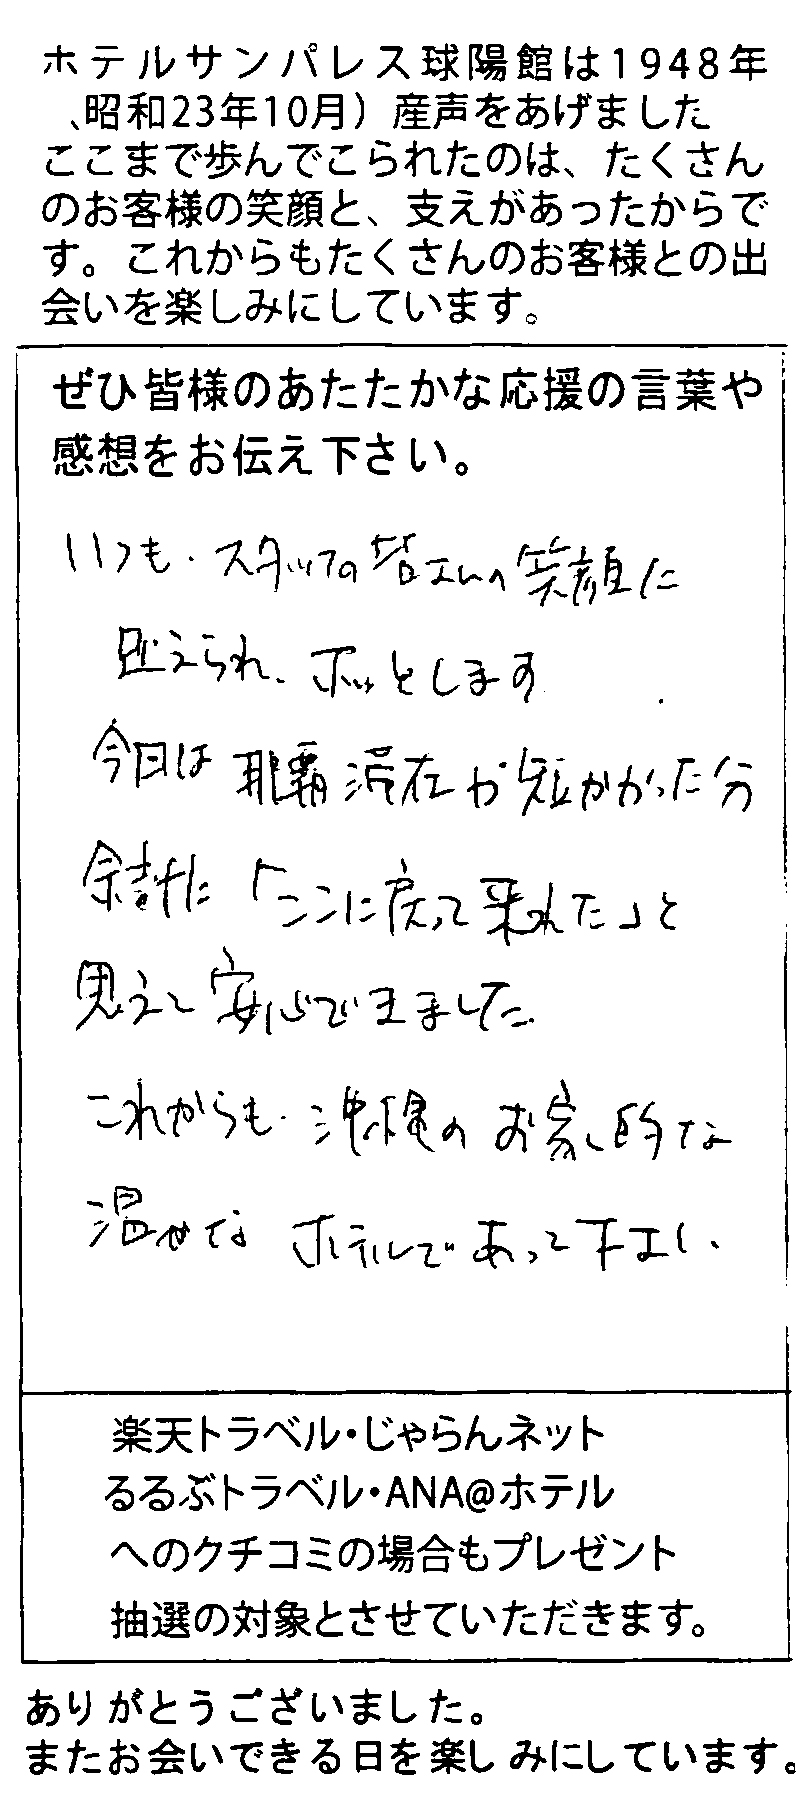 ホテルサンパレス球陽館は1948年
、昭和23年10月）産声をあげました
ここまで歩んでこられたのは、たくさん
のお客様の笑顔と、支えがあったからで
す。これからもたくさんのお客様との出
会いを楽しみにしています。
ぜひ皆様のあたたかな応援の言葉や
感想をお伝え下さい。
いつも、スタッフの皆さんの笑顔に
迎えられ、ホッとします
今日は那覇滞在が短かかった分
余計に「ここに戻って来れた」と
思えて安心できました。
これからも、沖縄のお家的な
温せな ホテルであって下さい、
楽天トラベル・じゃらんネット
るるぶトラベル・ANA@ホテル
へのクチコミの場合もプレゼント
抽選の対象とさせていただきます。
ありがとうございました。
またお会いできる日を楽しみにしています。